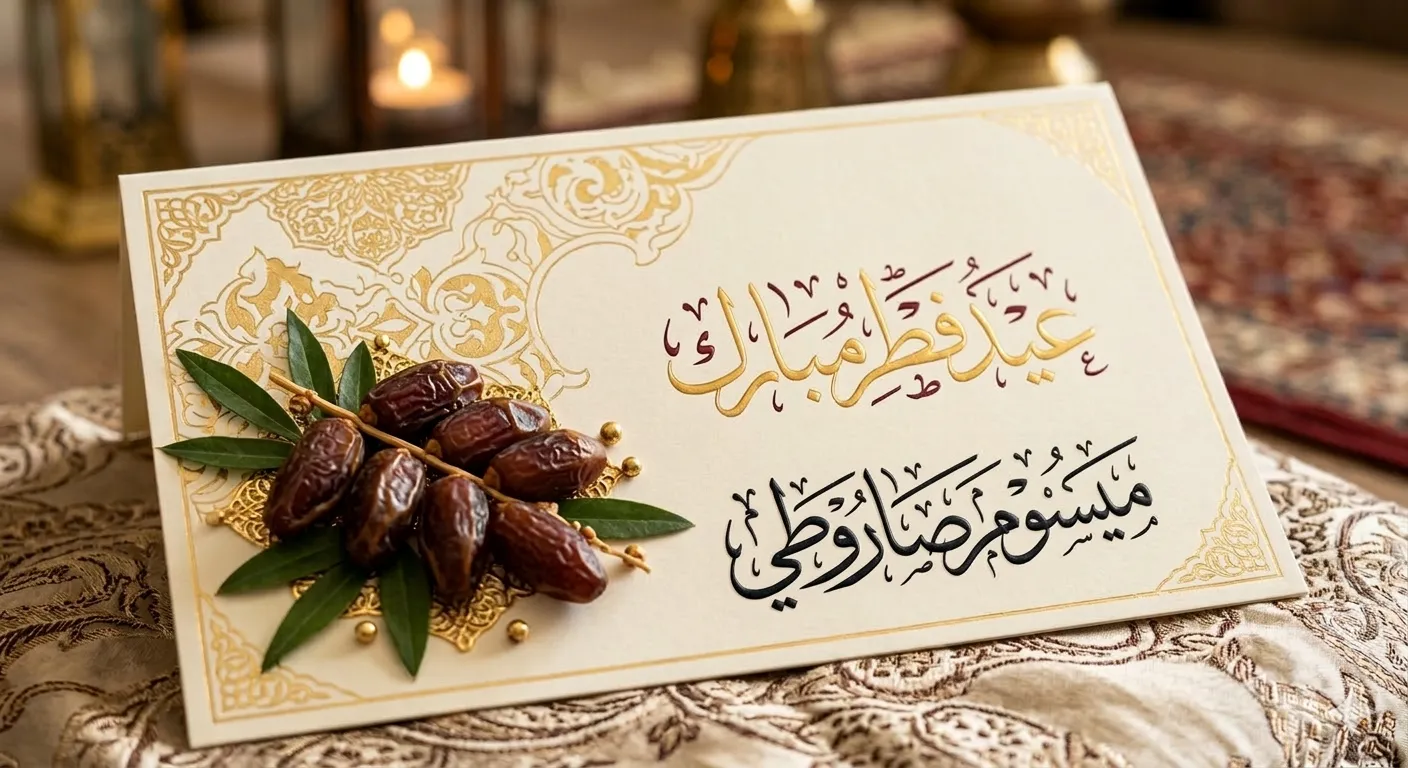 عيد فطر مبارك
ميسوم رصاروطي